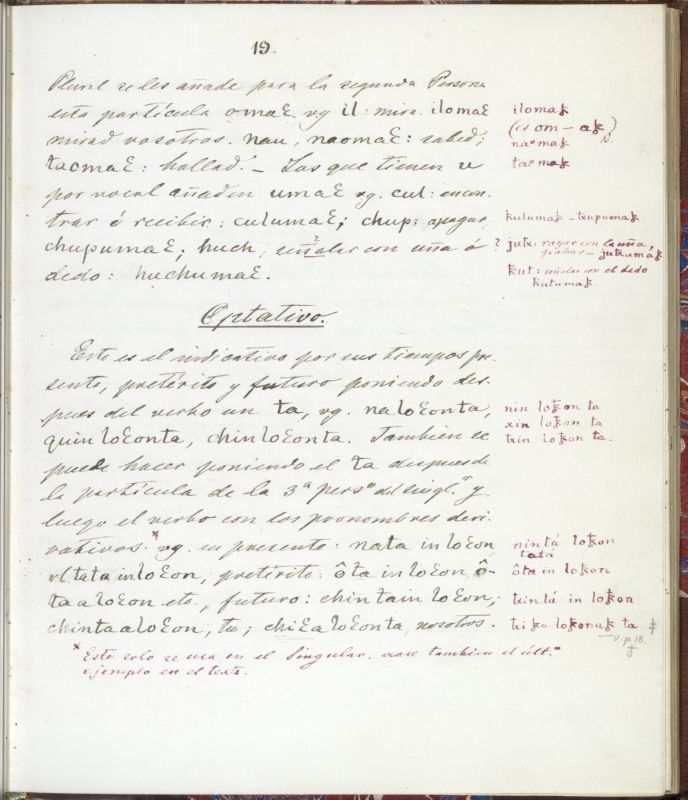 19.
Plural se les añade para la segunda Persona
esta partícula omaƐ vg il: mira. ilomaƐ
mirad vosotros. nau, naomaƐ: sabed;
taomaƐ: hallad. – Los que tienen u
por vocal añaden umaƐ vg. cul: encon-
trar ó recibir: culumaƐ; chup: apagar,
chupumaƐ; huch, señalar con uña ó
dedo: huchumaƐ.
ilomaꝁ
(es om – aꝁ)
naomaꝁ
taomaꝁ
kulumaꝁ – txupumaꝁ
?
? jutx: rayar con la uña,
grabar – jutxumaꝁ
kut: señalar con el dedo
kutumaꝁ.
Optativo.
Este es el indicativo por sus tiempos pre-
sente, pretérito y futuro poniendo des-
pues del verbo un ta, vg. na loƐon ta,
quin loƐonta, chin loƐonta. Tambien se
puede hacer poniendo el ta despues de
la partícula de la 3ª persª del singl.ʳ y
luego el verbo con los pronombres deri-
vativos.* vg. en presente: nata in loƐon
vl tata in loƐon, pretérito: ôta in loƐon ô-
ta a loƐon etc., futuro: chinta in loƐon;
chinta a loƐon, tu; chiƐa loƐonta, nosotros.
nin loꝁon ta
xin loꝁon ta
txin loꝁon ta.
nintá loꝁon
tatá
ôta in loꝁon
txintá in loꝁon
txi ꝁa loꝁonaꝁ ta ‡
v. p. 18.
‡
* Esto solo se usa en el Singular. vease tambien el últ.º
ejemplo en el texto.